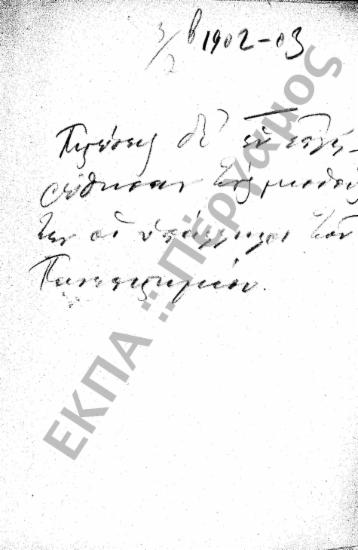 3/2 β 1902-03
Πράξεις δι' ὧν ἐπλη-
ρώθησαν τοὺς μισθούς
των οἱ ὑπάλληλοι τοῦ
Πανεπιστημίου.
ΕΚΠΑ ::: Πέργαμος